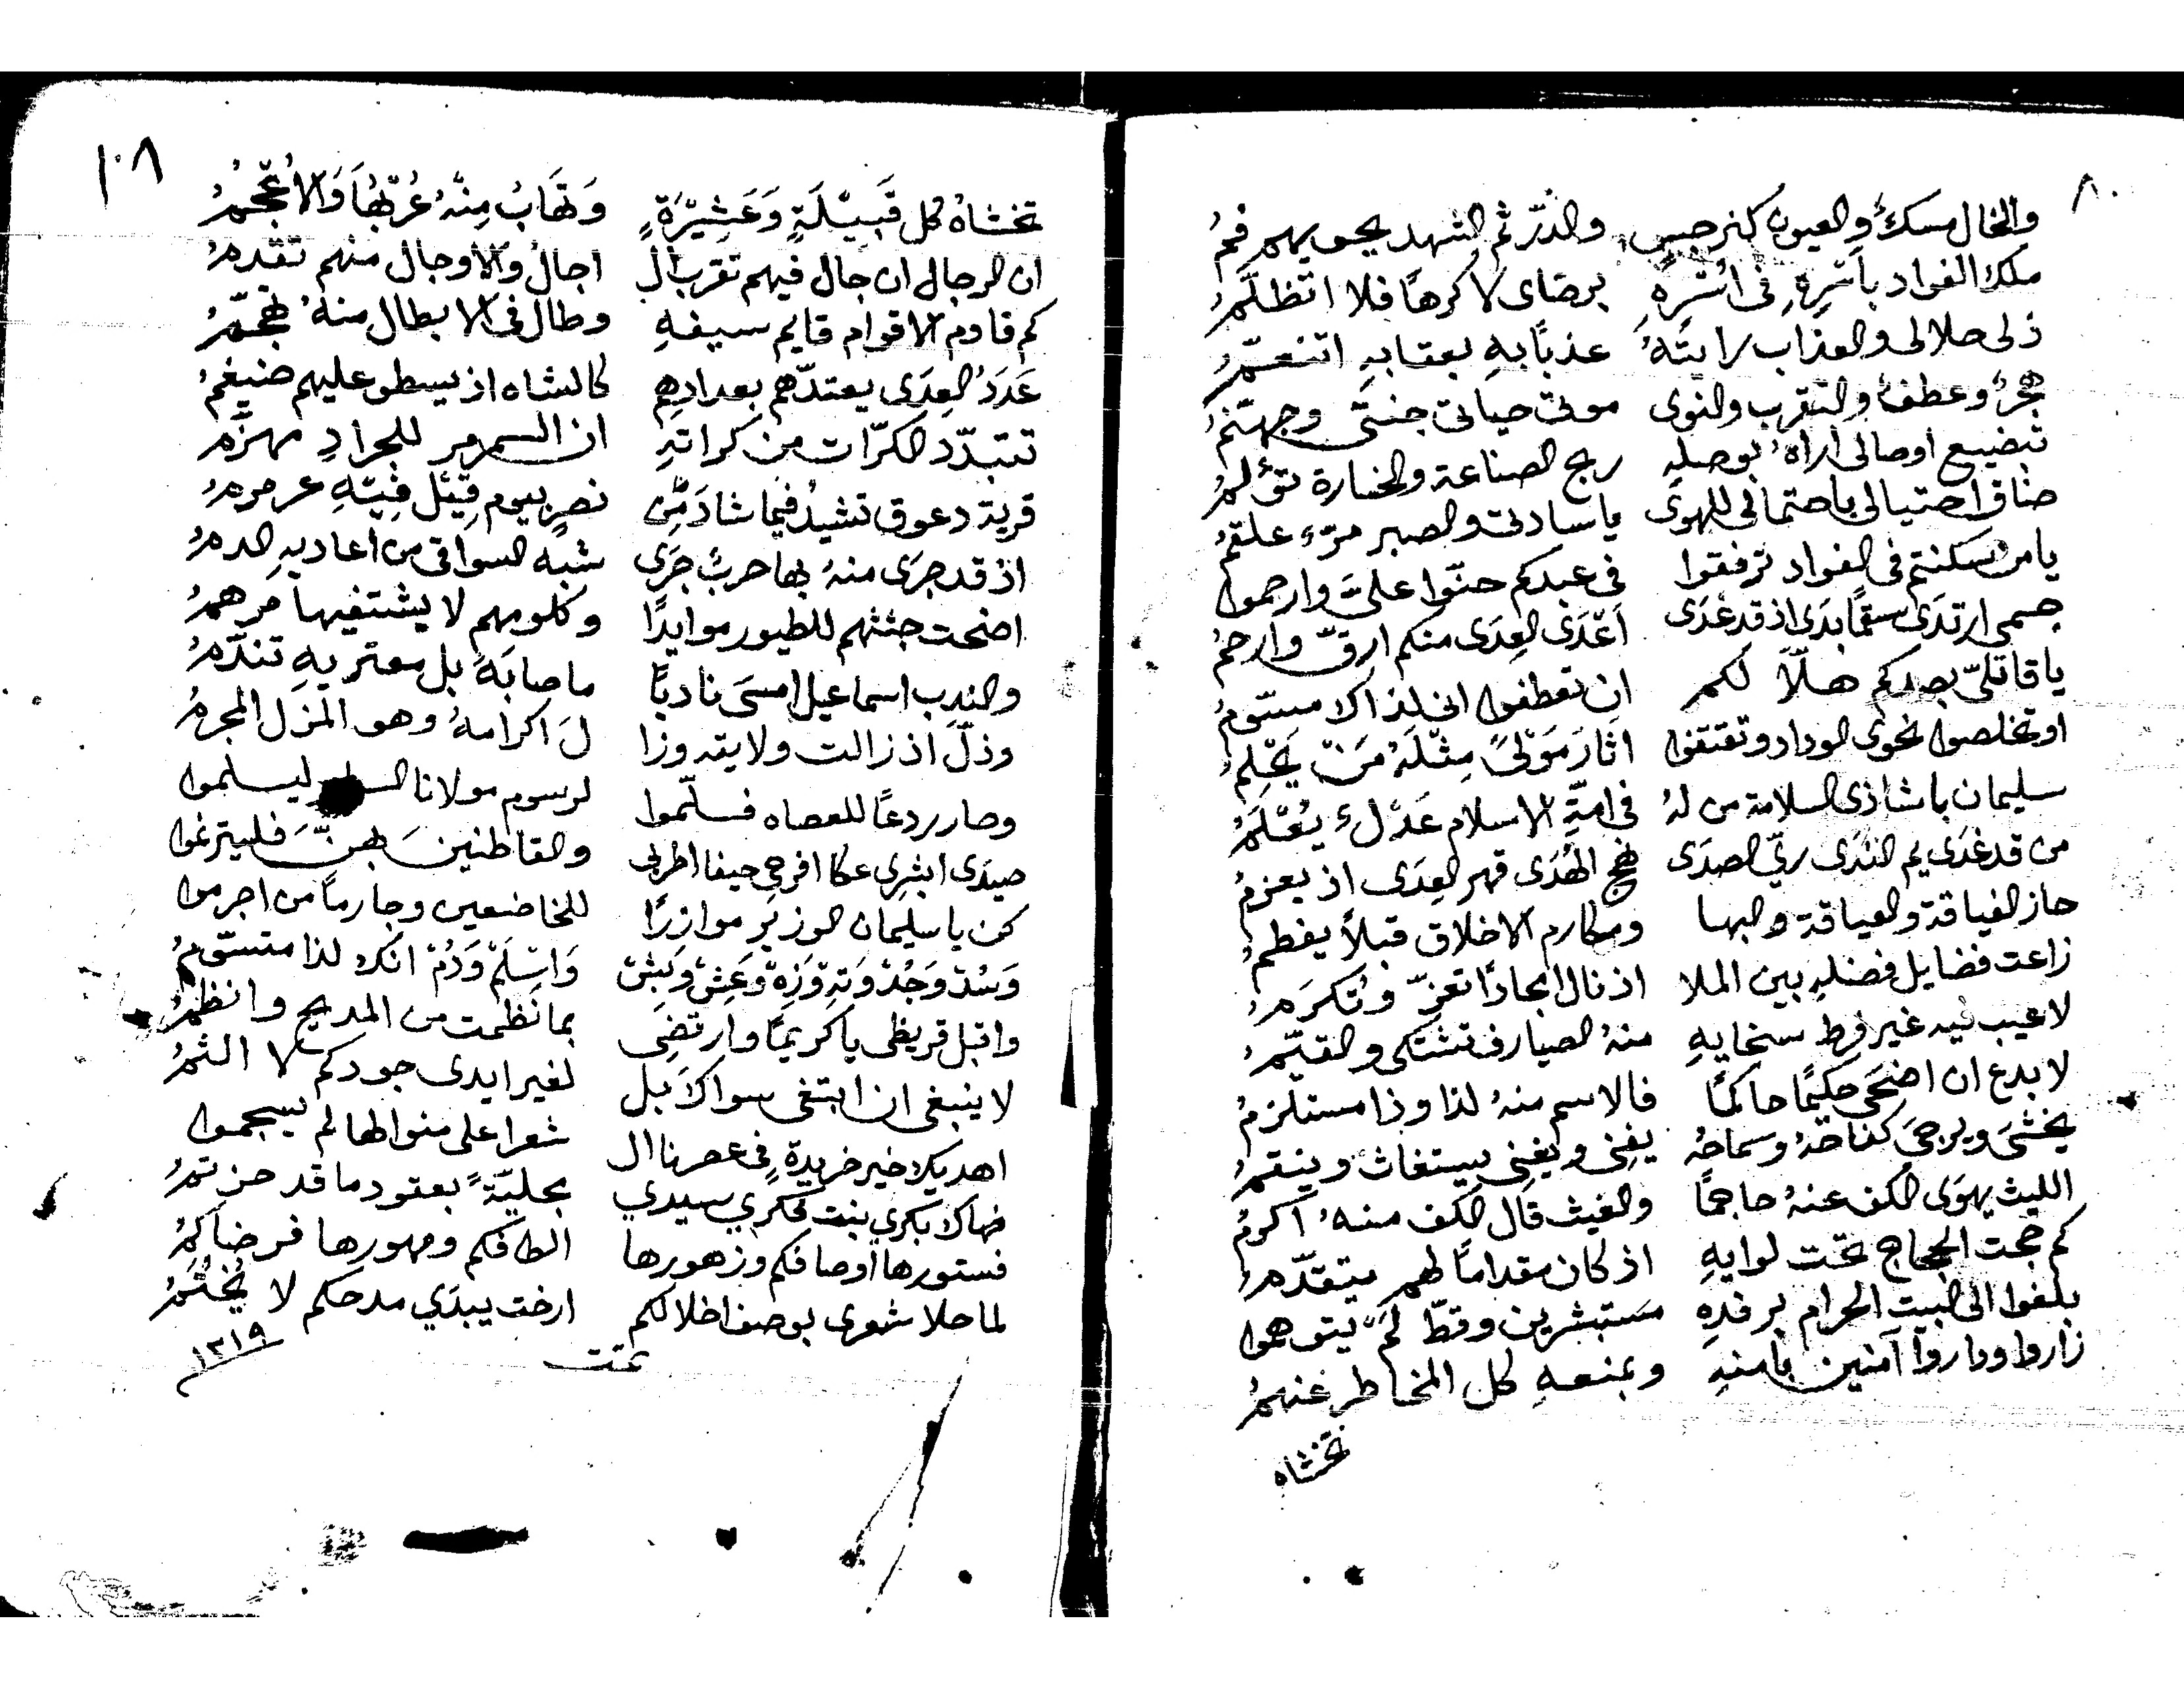 ٨٠
والخال مسك والعيون كنرجس والدرّ ثم الشهد يحويهم فمُ
ملك الفواد بأسرهِ في اسرهِ برضاي لا كرهًا فلا اتظلّمُ
ذلي حلالي والعذاب رايتهُ عذبًا بهِ بعقابهِ اتنعّمُ
هجرٌ وعطفٌ والتقرب والنوى موتي حياتي جنتي وجهنّمُ
تبضيع اوصالي اراهُ بوصلهِ ربح الصناعة والخسارة تؤلمُ
ضاق احتيالي باحتمالي للهوى ياسادتي والصبر مرّ علقمُ
يا من سكنتم في الفواد ترفقوا في عبدكم حنّوا عليَّ وارحموا
جسمي ارتدى سقمًا بدى اذ قد غدى اعدى العدى منكم ارقّ وارحمُ
يا قاتليّ بصدكم هلّا لكم ان تعطفوا اني لذاك لا مسوّمُ
او تخلصوا نحوي الوداد وتقتفوا اثار مَوْلىً مثلَهُ مَنْ يَحْلمُ
سليمان باشا ذي السلامة من لهُ في امّةِ الاسلام عَدْلٌ يُعْلَمُ
من قد غدى يم الندى ريّ الصدى نهج الهُدَى قهر العِدَى اذ يعزمُ
حاز الفياقة والعياقة والبها ومكارم الاخلاق قبلًا يفطمُ
زاعت فضايل فضلهِ بين الملا اذ نال ابحادًا تعزّ وتُكرَمُ
لا عيب فيه غير فرط سخايهِ منهُ الصيارف تشتكي والقيّمُ
لا بدع ان اضحى حكيمًا حاكمًا فالاسم منهُ لذا وذا مستلزمُ
يخشى ويرجى كفاحهُ وسماحهُ يفني ويغني يستغاث وينقمُ
الليث يهوى الكف عنهُ حاجمًا والغيث قال الكف منهُ اكرمُ
كم حجت الحجاج تحت لوايهِ اذ كان مقدامًا لهم يتقدّمُ
بلغوا الى البيت الحرام برفدهِ مستبشرين وقطّ لَمْ يتوهموا
زاروا وداروا آمنين بامنهِ وبمنعهِ كل المخاطر عنهمُ
تخشاه
١٠٨
تخشاهُ كل قَبِيْلَةٍ وَعَشِيْرَةٍ وَتَهَابُ مِنْهُ عُرْبُهَا وَالاعْجُمُ
ان الرجال ان جال فيهم تقرب ال اجال والاوجال منهم تقدمُ
كم قاوم الاقوام قايم سيفهِ وطال في الابطال منهُ تهجّمُ
عَدَدُ العِدَى يعتدّهم بعدادهم كالشاه اذ يسطو عليهم ضيغمُ
تتبدّد الكرّات من كراتهِ ان السمرمر للجرادِ مهزّم
قرية دعوق تشيد فيما شادَ مِنْ نصرٍ بيوم قيل فِيْهِ عرمرمُ
اذ قد جرى منهُ بها حربٌ جَرَى شبه السواقي من اعاديهِ الدمُ
اضحت جثثهم للطيور موايدًا وكلومهم لا يشتفيها مرهمُ
والندب اسماعيل امسى نادبًا ما صابَهُ بل معتريهِ تندّمُ
وذلّ اذ زالت ولايته وزا لَ اكرامهُ وهو المزل المجرمُ
وصار ردعًا للعصاه فسلّموا لرسوم مولانا ليسلموا
صيدَى ابشري عكا افرحي حيفا اطربي والقاطنينَ بهنَّ فليترنموا
كن يا سليمان الوزير موازرًا للخاضعين وجارمًا من اجرموا
وَسُدْ وَجُدْ وَتِهْ وَزِهْ وَعِشْ وَبِشْ وَاسْلَمْ وَدُمْ انك لذا متسوّمُ
واقبل قريظي يا كريمًا وارتضي بما نظمت من المديح وانظمُ
لا ينبغي ان ابتغي سواك لا بل لغير ايدي جودكم لا الثمُ
اهديك خير خريدةٍ في عصرنا ال شعرا على منوالها لم يسجموا
فهاك لا بكري بنت فكري سيدي بحليّةً بعقود ما قد حزتمُ
فستورها اوصافكم وزهورها الطافكم ومهورها فرضاكمُ
لما حلا شعري بوصف اخلالكم ارخت يبدي مدحكم لا يُخْتَمُ
تمت ١٢١٩